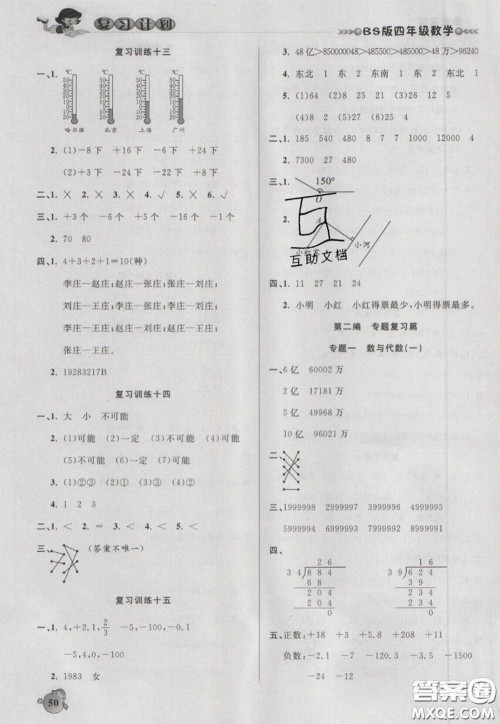 复习计划
BS版四年级数学
复习训练十三
一、1. ℃ ℃ ℃ ℃
哈尔滨 北京 上海 广州
2. (1)-8下 +16下 -6下 +24下
(2)+12下 -12下 -24下
二、1. × 2. × 3. × 4. √ 5. × 6. √
四、1. +3个 -6个 -5个 +6个
2. 70 80
五、1. 4+3+2+1=10(种)
李庄—赵庄;赵庄—张庄;张庄—刘庄;
刘庄—王庄;李庄—张庄;赵庄—刘庄;
张庄—王庄。
2. 19283217B
复习训练十四
一、1. 大 小 不可能
2. (1)可能 (2)一定 (3)不可能
(4)不可能 (5)可能 (6)一定
3. (1)②③ (2)① (3)①②③
4. 1 2 3
二、1. < 2. = 3. < 4. < 5. <
三、(答案不唯一)
复习训练十五
一、1. 4,+2,1,2/3 0 -5,-1,-100
-5,4,0,-100
2. 1983 女
50
3. 48亿>850000048>485500>485000>48万>96240
4. 东北 1 东 2 东北 1 东南 1 东 2
5. (1)64 (2)8 (3)25 (4)3 25 125
(5)4 (6)2 12 6
二、1. 185 540 918 8 7 7 1000 9
2. 7300 27 480
三、1. 150°
2.
小河
互助文档
四、1. 11 27 21 24
2. 小明 小红 小红得票最少,小明得票最多。
第二编 专题复习篇
专题一 数与代数(一)
一、6亿 60002万
2亿 17181万
5亿 49481万
10亿 96001万
二、
三、1999998 2999997 3999996 4999995
5999994 6999993 7999992 8999991
四、
26
34)884
68
204
204
0
16
39)624
39
234
234
0
五、正数:+18 +3 +5.8 +208 +6
负数:-30 -15 -7 -48 -100
-24 -12
答案圈
MXQE.COM